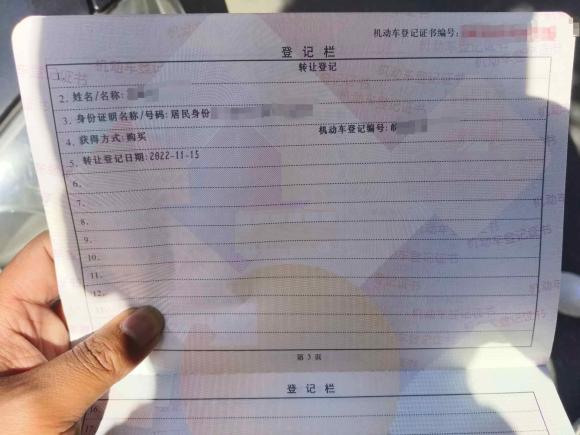 机动车登记证书编号:
登记栏
1. 转让登记
2. 姓名/名称:
3. 身份证明名称/号码: 居民身份
4. 获得方式: 购买 机动车登记编号:
5. 转让登记日期: 2022-11-15
6.
7.
8.
9.
10.
11.
12.
第 3 页
登记栏
16.
17.